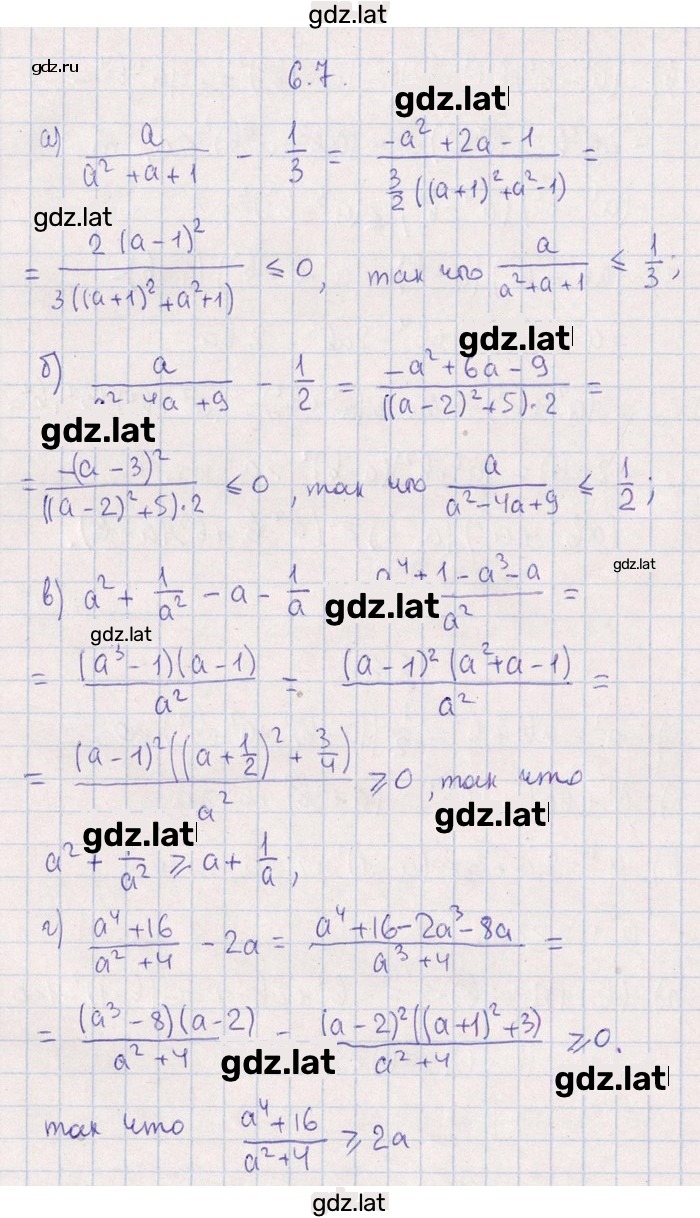 gdz.lat
gdz.ru
6.7.
gdz.lat
а) a/(a² + a + 1) - 1/3 = (-a² + 2a - 1)/(3/2 ((a+1)² + a² - 1)) =
gdz.lat
= 2 (a - 1)²/(3((a+1)² + a² + 1)) ≤ 0, так что a/(a² + a + 1) ≤ 1/3;
gdz.lat
б) a/(a² - 4a + 9) - 1/2 = (-a² + 6a - 9)/(((a - 2)² + 5)·2 =
gdz.lat
= -(a - 3)²/(((a - 2)² + 5)·2 ≤ 0, так что a/(a² - 4a + 9) ≤ 1/2;
gdz.lat
в) a² + 1/a² - a - 1/a (a⁴ + 1 - a³ - a)/a² =
gdz.lat
gdz.lat
= (a³ - 1)(a - 1)/a² = (a - 1)² (a² + a - 1)/a² =
= (a - 1)² ((a + 1/2)² + 3/4)/a² ≥ 0, так что
gdz.lat
gdz.lat
a² + 1/a² ≥ a + 1/a;
г) (a⁴ + 16)/(a² + 4) - 2a = (a⁴ + 16 - 2a³ - 8a)/(a³ + 4) =
= (a³ - 8)(a - 2)/(a² + 4) - (a - 2)² ((a + 1)² + 3)/(a² + 4) ≥ 0.
gdz.lat
gdz.lat
так что (a⁴ + 16)/(a² + 4) ≥ 2a
gdz.lat